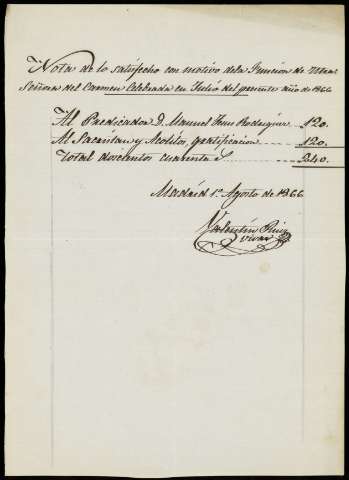 Nota de lo satisfecho con motivo dela Funcion de Ntra
Señora del Carmen Celebrada en Julio del presente año de 1866
Al Predicador D. Manuel Rodriguez 120.
Al Sacristan y Acolitos, gratificacion 120.
Total doscientos cuarenta 240.
Madrid 1º Agosto de 1866
Valentin Ruiz
Vivar